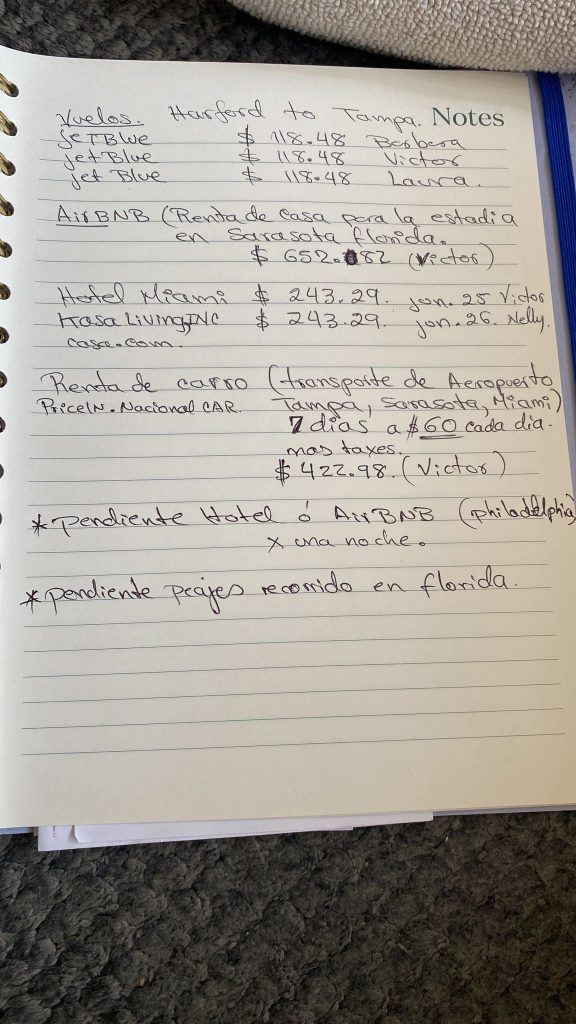 Notes
Vuelos. Harford to Tampa.
JETBlue $ 118.48 Berbera
jetBlue $ 118.48 Victor
jet Blue $ 118.48 Laura.
AirBNB (Renta de casa para la estadia
en Sarasota florida.
$ 652.82 (Victor)
Hotel Miami $ 243.29. jan. 25 Victor
Kasa Living,INC $ 243.29. jan. 26. Nelly.
casa.com.
Renta de carro (transporte de Aeropuerto
PriceIN. Nacional CAR. Tampa, Sarasota, Miami)
7 dias a $60 cada dia.
mas taxes.
$ 422.98. (Victor)
* pendiente Hotel ó AirBNB (philadelphia)
x una noche.
* pendiente peajes recorrido en florida.